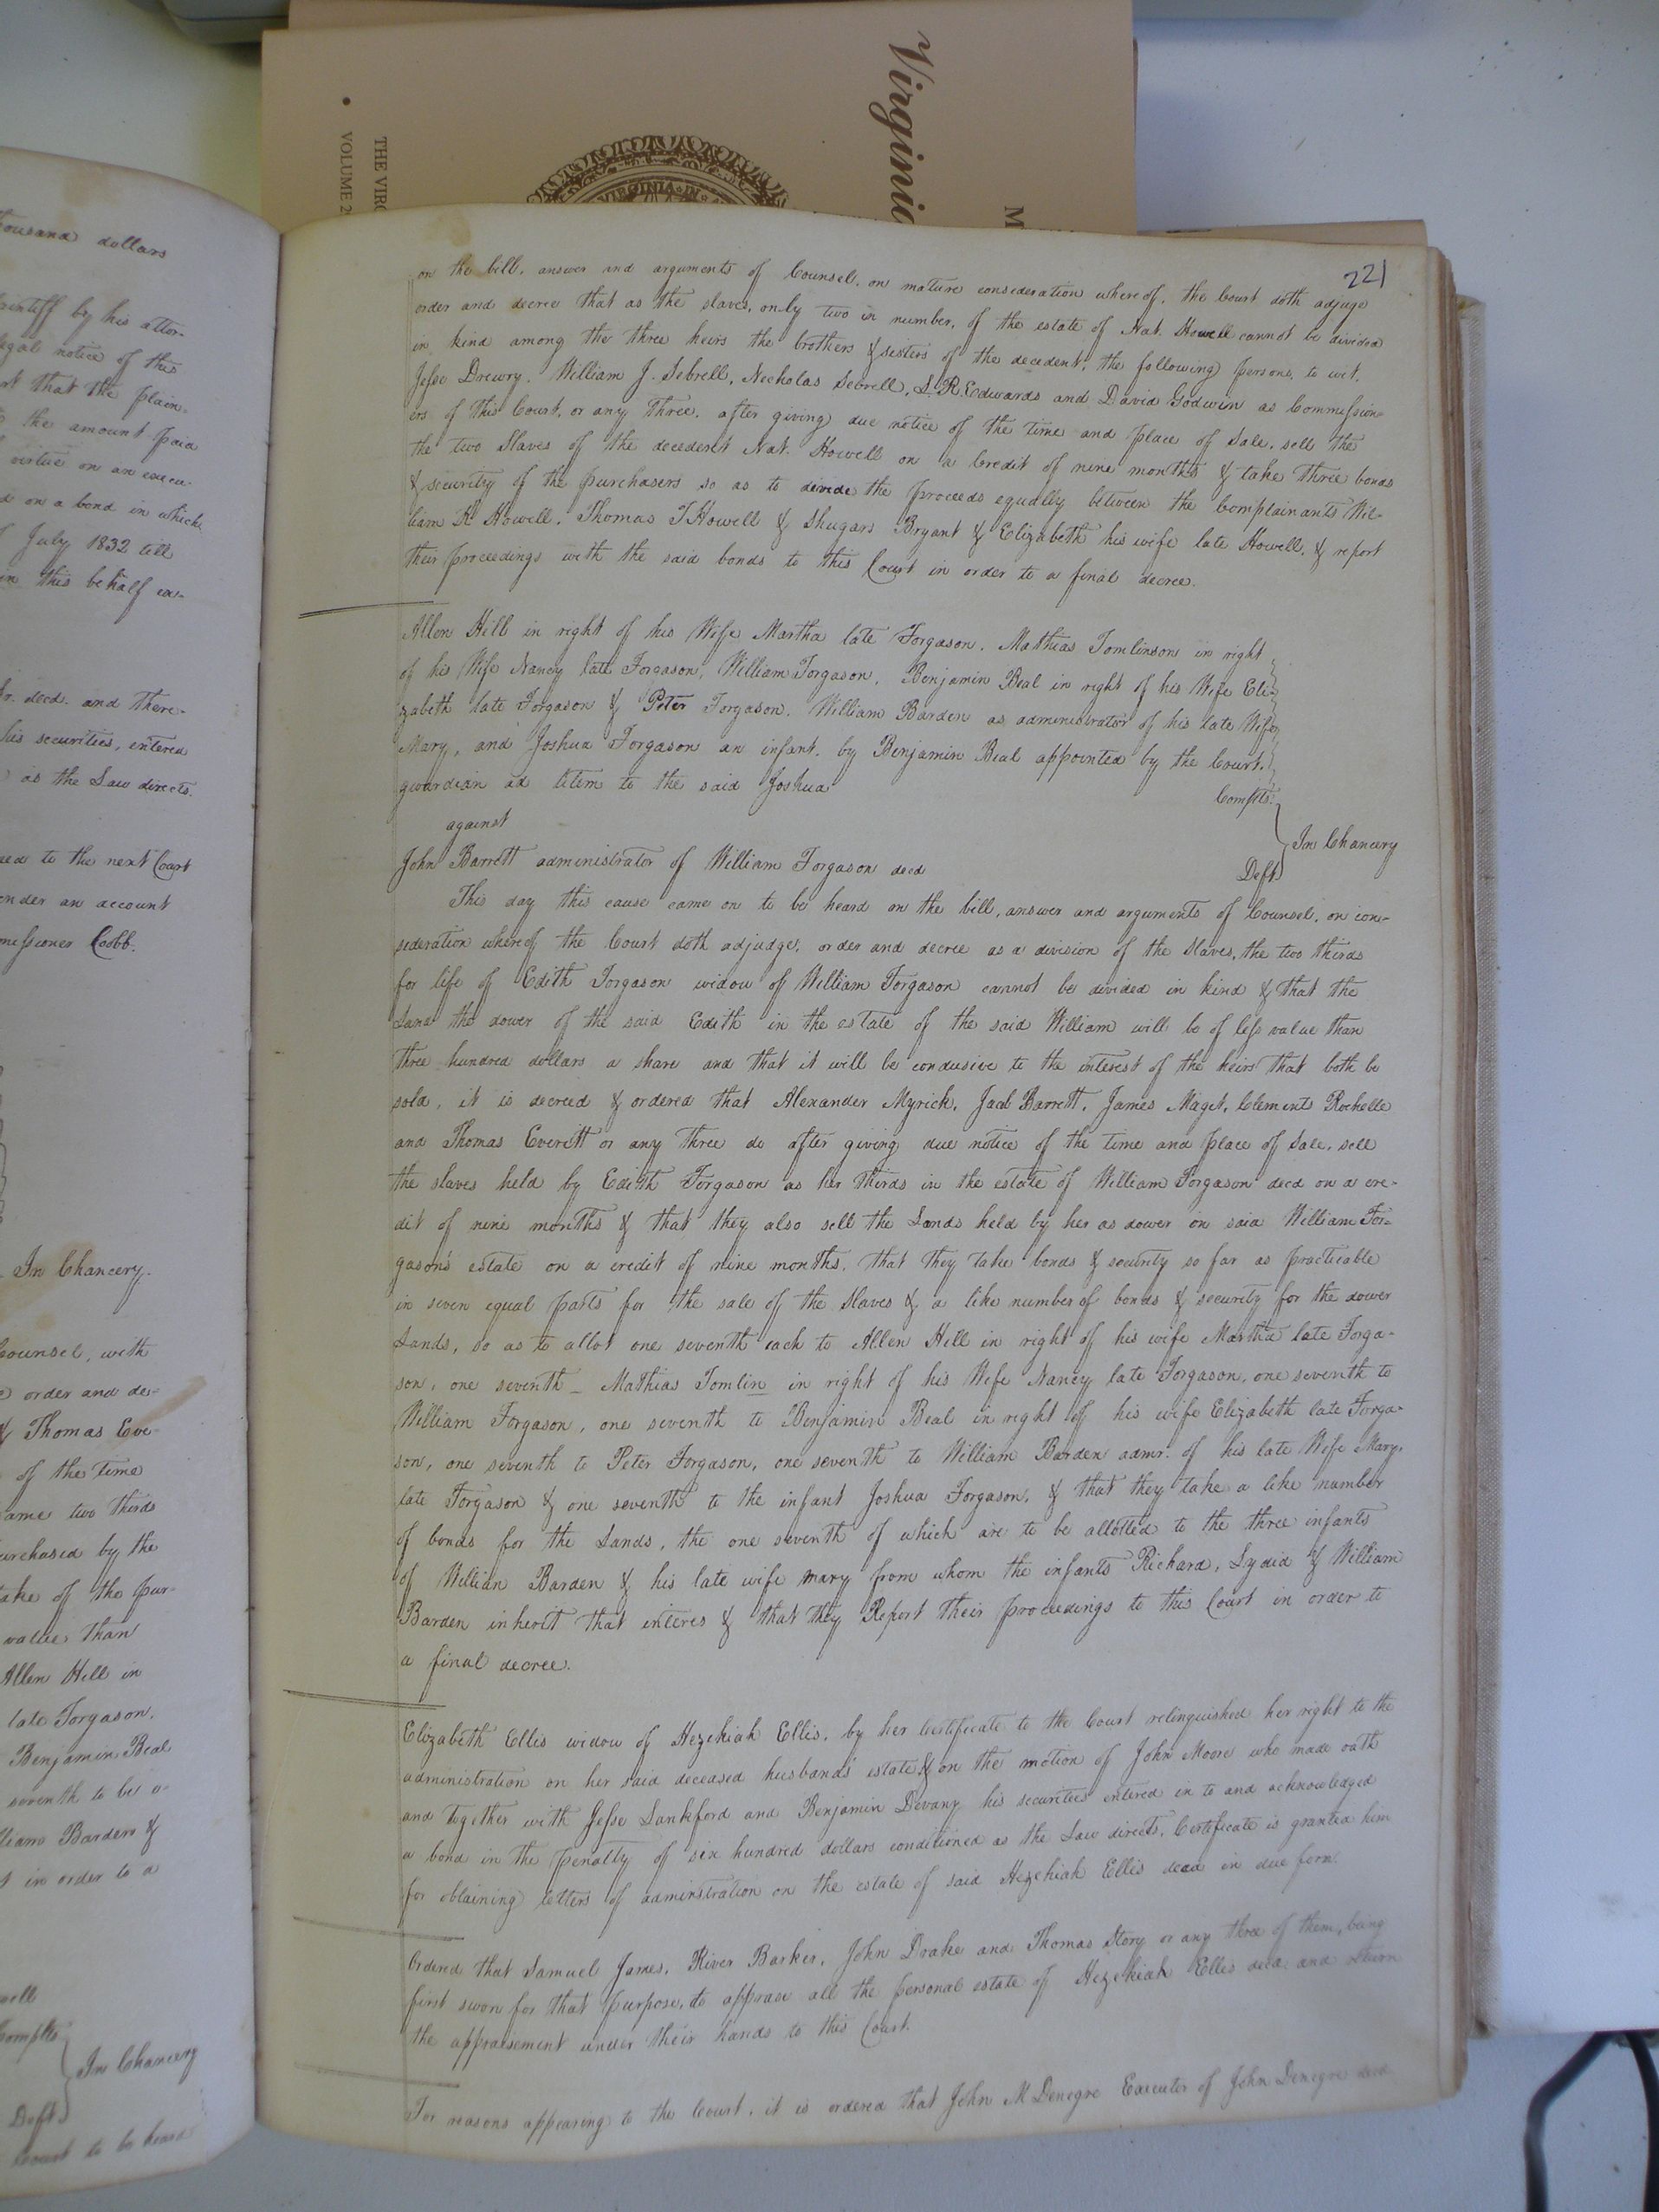 Virginia
THE VIRG
VOLUME 2
VIRGINIA IN
M
ousand dollars
aintiff by his attor-
egal notice of the
rt that the plain-
the amount paid
virtue on an execu-
d on a bond in which
July 1832 till
in this behalf ex-
Sr. decd. and there-
his securities, entered
as the Law directs.
ed to the next Court
ender an account
missioner Cobb.
In Chancery.
Counsel, with
order and de-
& Thomas Eve-
of the time
same two thirds
urchased by the
take of the pur-
value than
Allen Hill in
late Forgason,
Benjamin Beal
seventh to be a-
liam Barden &
in order to a
well
Complts
In Chancery
Deft
to be heard
221
on the bill, answer and arguments of Counsel, on mature consideration whereof, the Court doth adjuge
order and decree that as the slaves, only two in number, of the estate of Nat. Howell cannot be divided
in kind among the three heirs the brothers & sisters of the decedent, the following persons, to wit,
Jesse Drewry, William J. Sebrell, Nicholas Sebrell, S. R. Edwards and David Godwin as Commission-
ers of this Court, or any three, after giving due notice of the time and place of Sale, sell the
the two Slaves of the decedent Nat. Howell on a Credit of nine months & take three bonds
& security of the purchasers so as to divide the proceeds equally between the Complainants Wil-
liam H Howell, Thomas J Howell & Shugars Bryant & Elizabeth his wife late Howell, & report
their proceedings with the said bonds to this Court in order to a final decree.
Allen Hill in right of his Wife Martha late Forgason, Mathias Tomlinson in right
of his Wife Nancy late Forgason, William Forgason, Benjamin Beal in right of his Wife Eli-
zabeth late Forgason & Peter Forgason, William Barden as administrator of his late Wife
Mary, and Joshua Forgason an infant, by Benjamin Beal appointed by the Court,
guardian ad litem to the said Joshua Complts.
against
In Chancery
John Barrett administrator of William Forgason decd Deft
This day this cause came on to be heard on the bill, answer and arguments of Counsel, on con-
sideration whereof the Court doth adjudge, order and decree as a division of the Slaves, the two thirds
for life of Edith Forgason widow of William Forgason cannot be divided in kind & that the
Land the dower of the said Edith in the estate of the said William will be of less value than
three hundred dollars a share and that it will be condusive to the interest of the heirs that both be
sold, it is decreed & ordered that Alexander Myrick, Jacob Barrett, James Maget, Clements Rochelle
and Thomas Everett or any three do after giving due notice of the time and place of Sale, sell
the slaves held by Edith Forgason as her thirds in the estate of William Forgason decd on a cre-
dit of nine months & that they also sell the Lands held by her as dower in said William For-
gason's estate on a credit of nine months, that they take bonds & security so far as practicable
in seven equal parts for the sale of the Slaves & a like number of bonds & security for the dower
Lands, so as to allot one seventh each to Allen Hill in right of his wife Martha late Forga-
son, one seventh _ Mathias Tomlin in right of his Wife Nancy late Forgason, one seventh to
William Forgason, one seventh to Benjamin Beal in right of his wife Elizabeth late Forga-
son, one seventh to Peter Forgason, one seventh to William Barden admr. of his late Wife Mary,
late Forgason & one seventh to the infant Joshua Forgason, & that they take a like number
of bonds for the Lands, the one seventh of which are to be allotted to the three infants
of William Barden & his late wife Mary from whom the infants Richard, Lydia & William
Barden inherit that interes & that they Report their proceedings to this Court in order to
a final decree.
Elizabeth Ellis widow of Hezekiah Ellis, by her Certificate to the Court relinquished her right to the
administration on her said deceased husbands estate & on the motion of John Moore who made oath
and together with Jesse Lankford and Benjamin Devany his securities entered in to and acknowledged
a bond in the penalty of six hundred dollars conditioned as the Law directs, Certificate is granted him
for obtaining letters of adminstration on the estate of said Hezekiah Ellis decd in due form.
Ordered that Samuel James, River Barker, John Drake and Thomas Story or any three of them, being
first sworn for that purpose, do appraise all the personal estate of Hezekiah Ellis decd. and return
the appraisement under their hands to this Court.
For reasons appearing to the Court, it is ordered that John M Denegre Executor of John Denegre decd